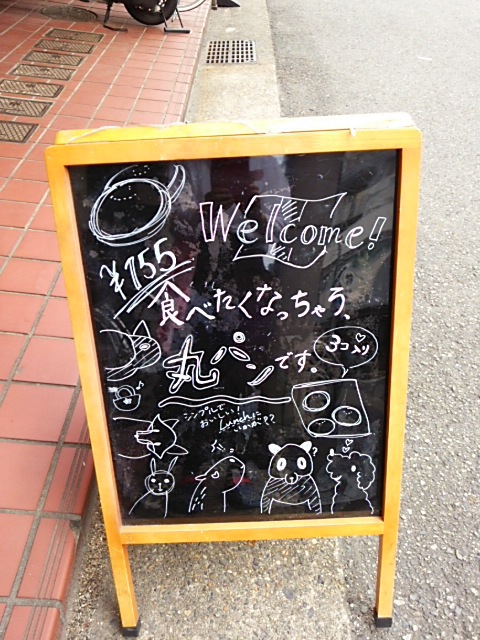 Welcome!
¥155
食べたくなっちゃう、
丸パンです。
3コ入り
シンプルで
おいしい!
Lunchに
いかが??